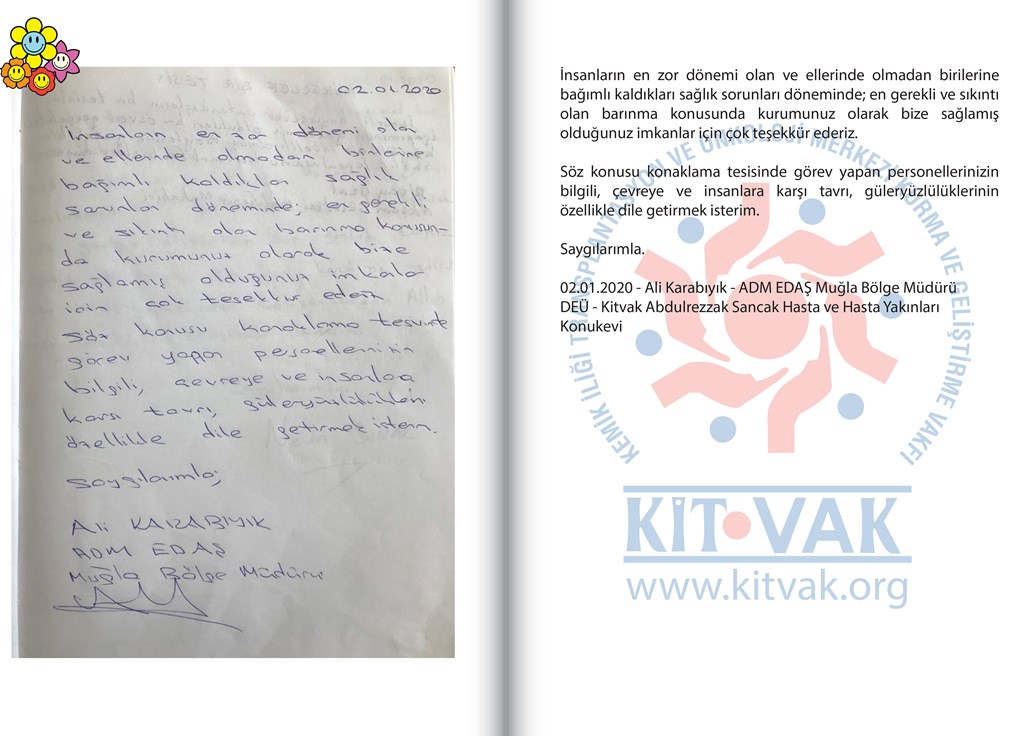 02.01.2020
İnsanların en zor dönemi olan
ve ellerinde olmadan birilerine
bağımlı kaldıkları sağlık
sorunları döneminde; en gerekli
ve sıkıntı olan barınma konusun-
da kurumunuz olarak bize
sağlamış olduğunuz imkanlar
için çok teşekkür ederiz
Söz konusu konaklama tesisinde
görev yapan personellerinizin
bilgili, çevreye ve insanlara
karşı tavrı, güleryüzlülüklerini
özellikle dile getirmek isterim.
Saygılarımla;
Ali KARABIYIK
ADM EDAŞ
Muğla Bölge Müdürü
İnsanların en zor dönemi olan ve ellerinde olmadan birilerine
bağımlı kaldıkları sağlık sorunları döneminde; en gerekli ve sıkıntı
olan barınma konusunda kurumunuz olarak bize sağlamış
olduğunuz imkanlar için çok teşekkür ederiz.
Söz konusu konaklama tesisinde görev yapan personellerinizin
bilgili, çevreye ve insanlara karşı tavrı, güleryüzlülüklerinin
özellikle dile getirmek isterim.
Saygılarımla.
02.01.2020 - Ali Karabıyık - ADM EDAŞ Muğla Bölge Müdürü
DEÜ - Kitvak Abdulrezzak Sancak Hasta ve Hasta Yakınları
Konukevi
KEMİK İLİĞİ TRANSPLANTASYON VE ONKOLOJİ MERKEZİ KURMA VE GELİŞTİRME VAKFI
KİT VAK
www.kitvak.org